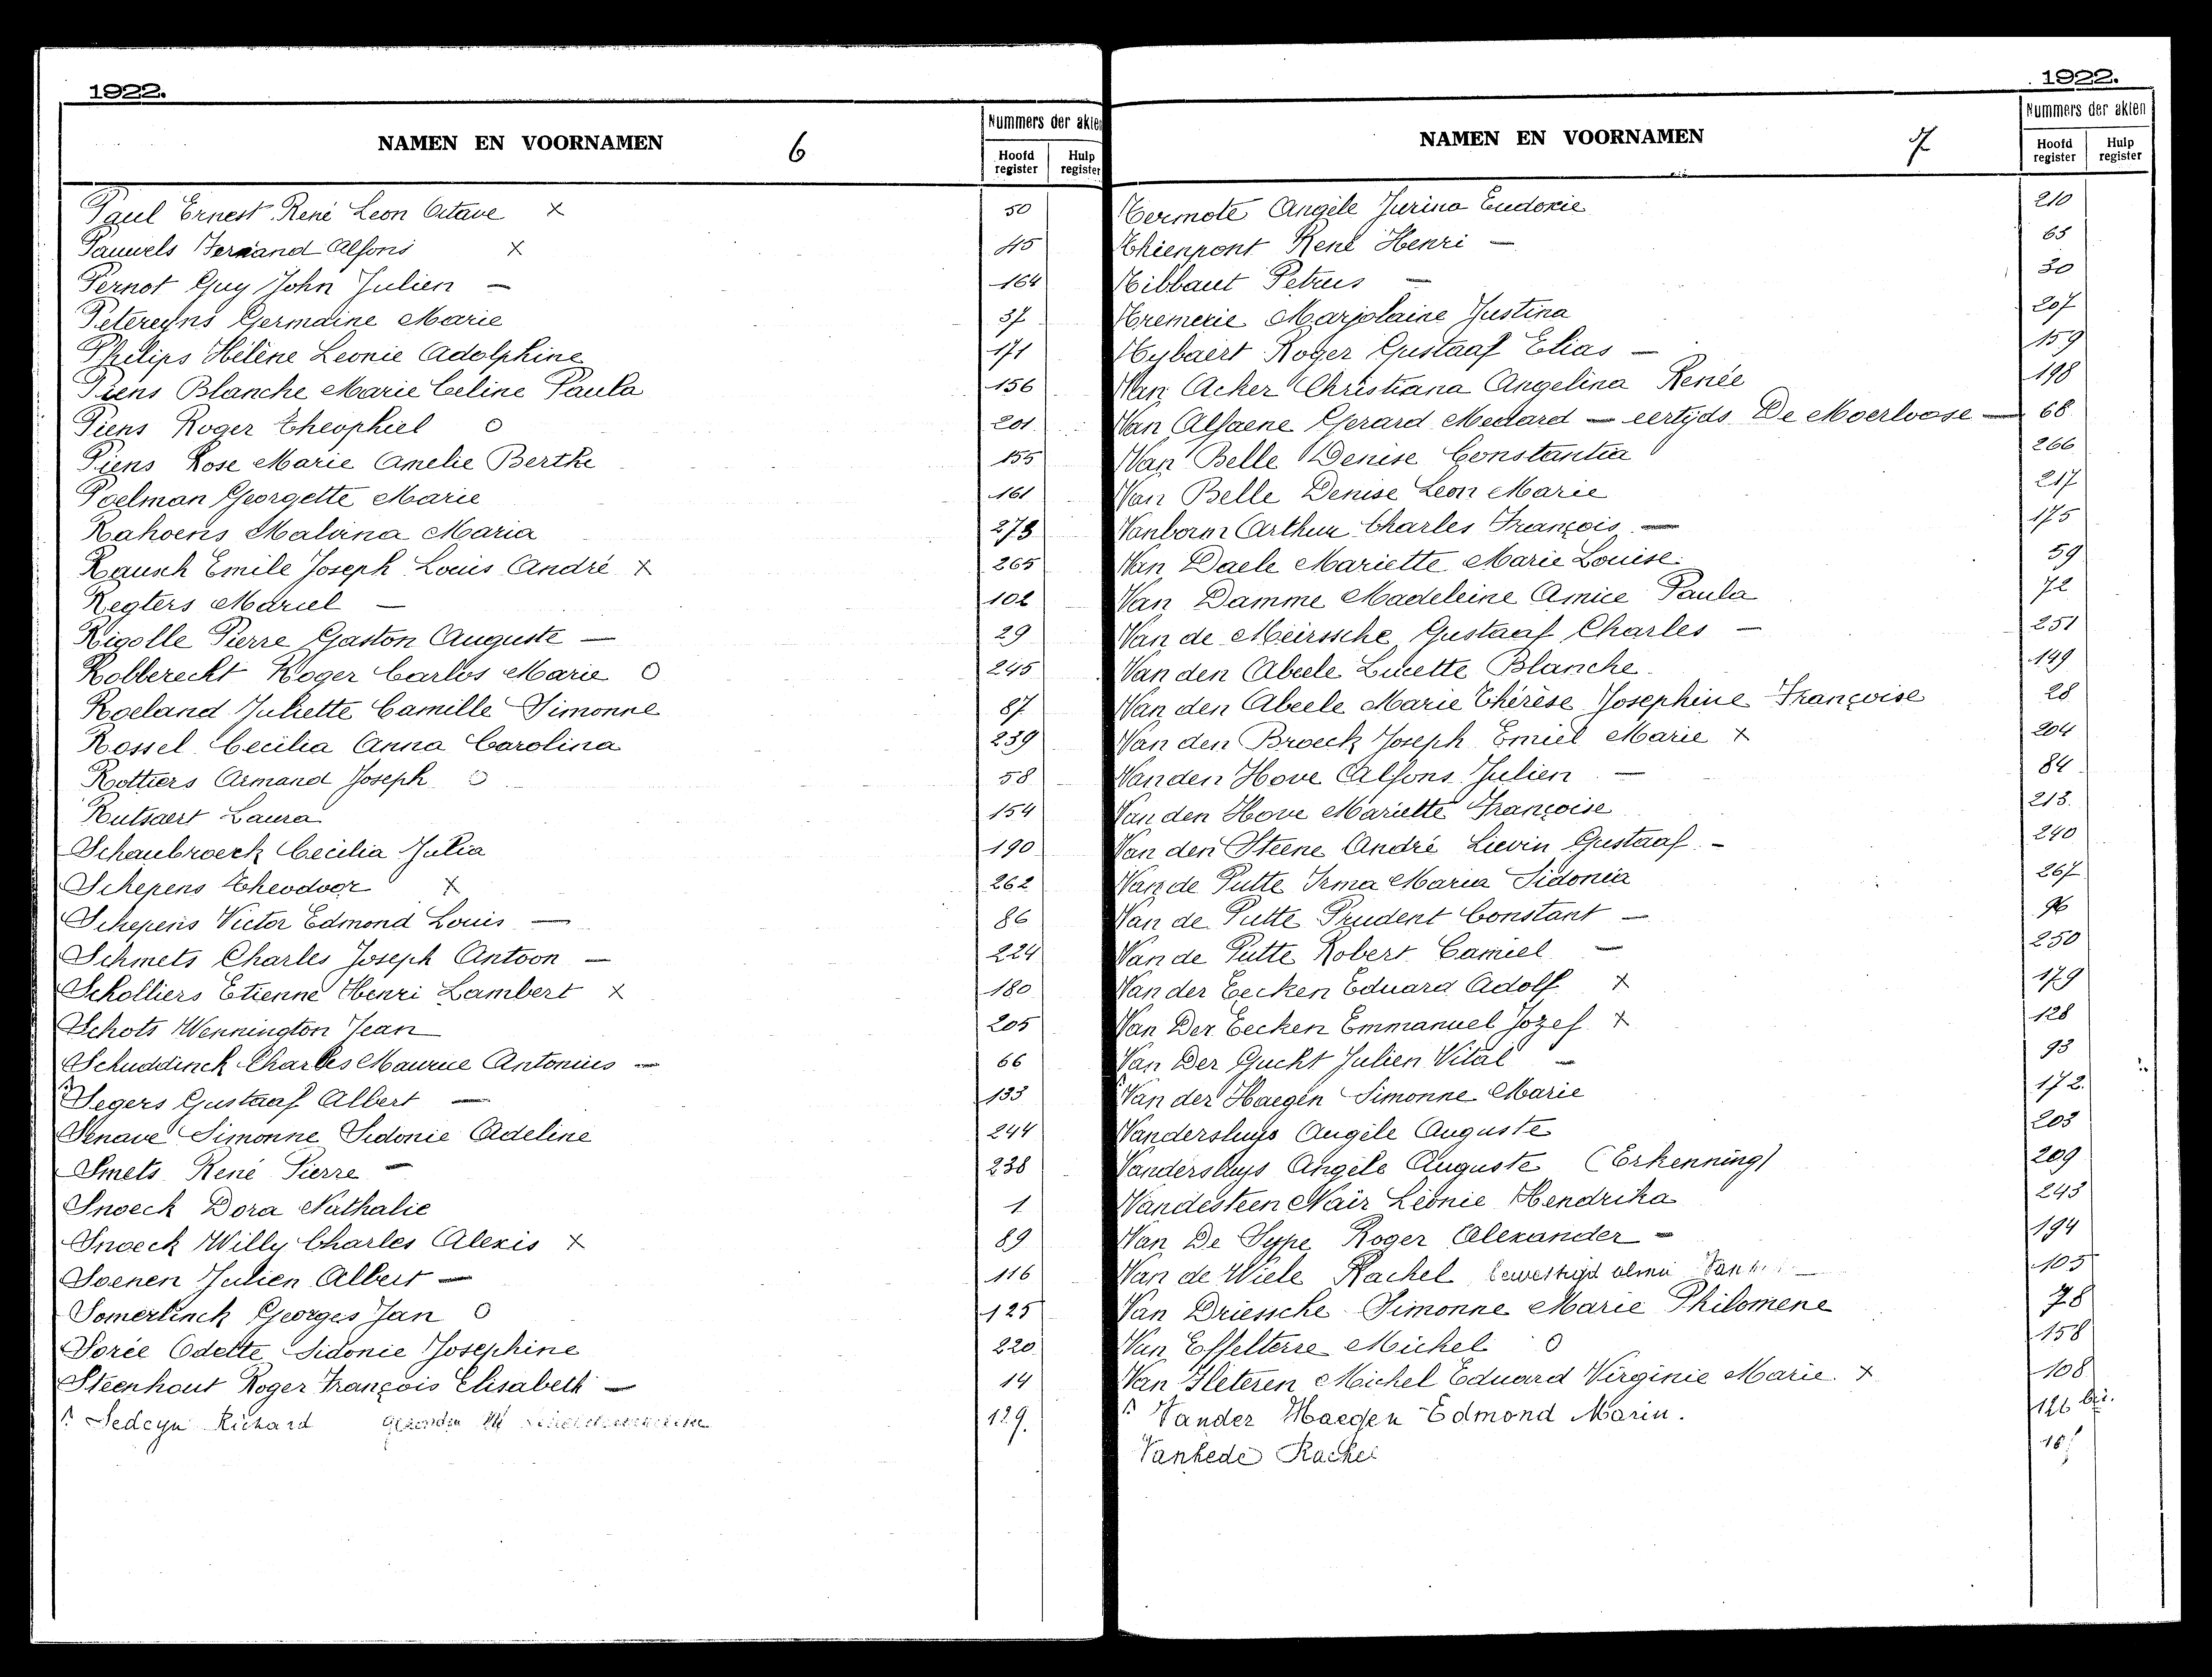 1922.
NAMEN EN VOORNAMEN 6
Nummers der akten
Hoofd register Hulp register
Paul Ernest René Leon Octave x 50
Pauwels Fernand Alfons x 45
Pernot Guy John Julien — 164
Petereyns Germaine Marie 37
Philips Hélène Leonie Adolphine 171
Piens Blanche Marie Celine Paula 156
Piens Roger Theophiel o 201
Piens Rose Marie Amelie Berthe 155
Poelman Georgette Marie 161
Rahoens Malvina Maria 273
Rausch Emile Joseph Louis André x 265
Regters Mariel — 102
Rigolle Pierre Gaston Auguste — 29
Robberecht Roger Carlos Marie o 245
Roeland Juliette Camille Simonne 87
Rossel Cecilia Anna Carolina 239
Rottiers Armand Joseph o 58
Rutsaert Laura 154
Schaubroeck Cecilia Julia 190
Schepens Theodoor x 262
Schepens Victor Edmond Louis — 86
Schmets Charles Joseph Antoon — 224
Scholliers Etienne Henri Lambert x 180
Schots Wennington Jean 205
Schuddinck Charles Maurice Antonius — 66
Segers Gustaaf Albert — 133
Senave Simonne Sidonie Adeline 244
Smets René Pierre — 238
Snoeck Dora Nathalie 1
Snoeck Willy Charles Alexis x 89
Soenen Julien Albert — 116
Somerlinck Georges Jan o 125
Sorée Odette Sidonie Josephine 220
Steenhout Roger François Elisabeth — 14
Sedeyn Richard 129.
1922.
NAMEN EN VOORNAMEN 7
Nummers der akten
Hoofd register Hulp register
Termote Angèle Jurina Eudoxie 210
Thienpont René Henri — 65
Tibbaut Petrus — 30
Tremerie Marjolaine Justina 207
Tybaert Roger Gustaaf Elias — 159
Van Acker Christiana Angelina Renée 198
Van Alsaene Gerard Medard — eertijds De Moerloose — 68
Van Belle Denise Constantia 266
Van Belle Denise Leon Marie 217
Vanborm Arthur Charles François — 175
Van Daele Mariette Marie Louise 59
Van Damme Madeleine Amice Paula 72
Van de Meirssche Gustaaf Charles — 251
Van den Abeele Lucette Blanche 149
Van den Abeele Marie Thérèse Josephine Françoise 28
Van den Broeck Joseph Emiel Marie x 204
Van den Hove Alfons Julien — 84
Van den Hove Mariette Françoise 213.
Van den Steene André Lievin Gustaaf — 240
Van de Putte Irma Maria Sidonia 267
Van de Putte Prudent Constant — 96
Van de Putte Robert Camiel — 250
Van der Eecken Eduard Adolf x 179
Van Der Eecken Emmanuel Jozef x 128
Van Der Gucht Julien Vital — 93
Van der Haegen Simonne Marie 172.
Vandersluys Angèle Auguste 203
Vandersluys Angèle Auguste (Erkenning) 209
Vandesteen Naïr Léonie Hendrika 243
Van De Sype Roger Alexander — 194
Van de Wiele Rachel 105
Van Driessche Simonne Marie Philomene 78
Van Effelterre Michel o 158
Van Ileteren Michel Eduard Virginie Marie x 108
Vander Haegen Edmond Marin. 126 bis.
Vanhede Rachel